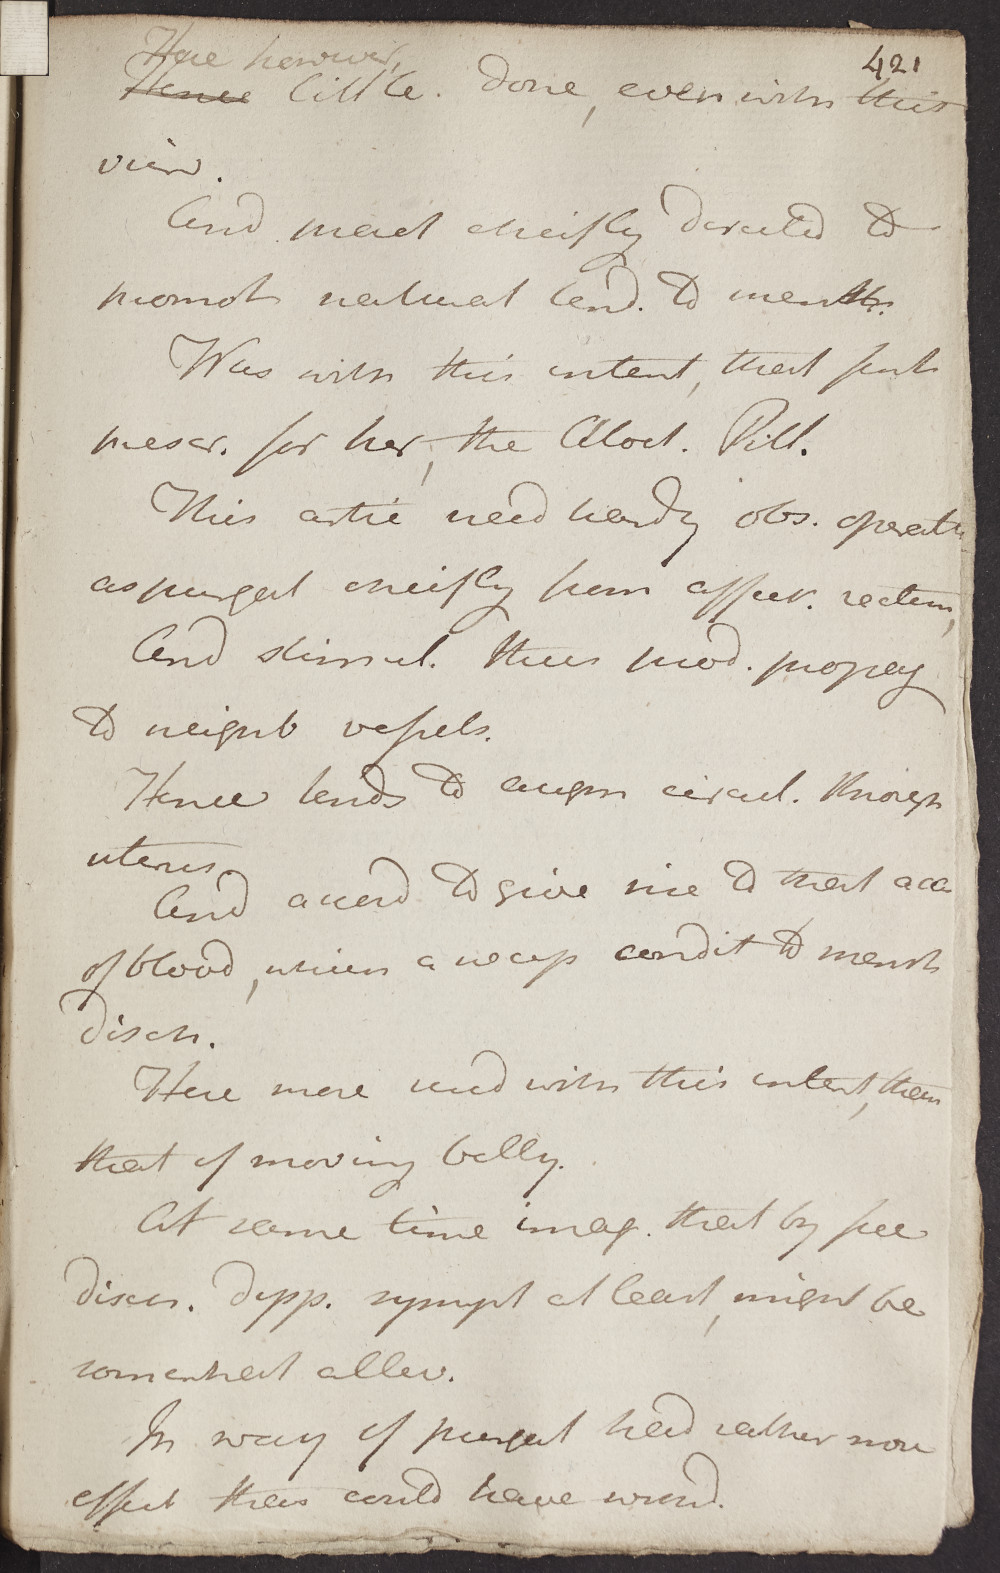 421
Here however,
Hence little. done, even with this
view.
And pract chiefly directed to
promot natural tend. to menstr.
Was with this intent, that first
prescr. for her, the Aloet. Pill.
This artic need hardly obs. operate
as purgat chiefly from affect. rectum,
And stimul. thus prod. propag
to neighb vessels.
Hence tends to augm circul. through
uterus.
And accord to give rise to that acc
of blood, which a necess condit to menst
disch.
Here more used with this intent, than
that of moving belly.
At same time imag. that by free
disch. dysp. sympt at least, might be
somewhat allev.
In way of purgat had rather more
effect than could have wished.